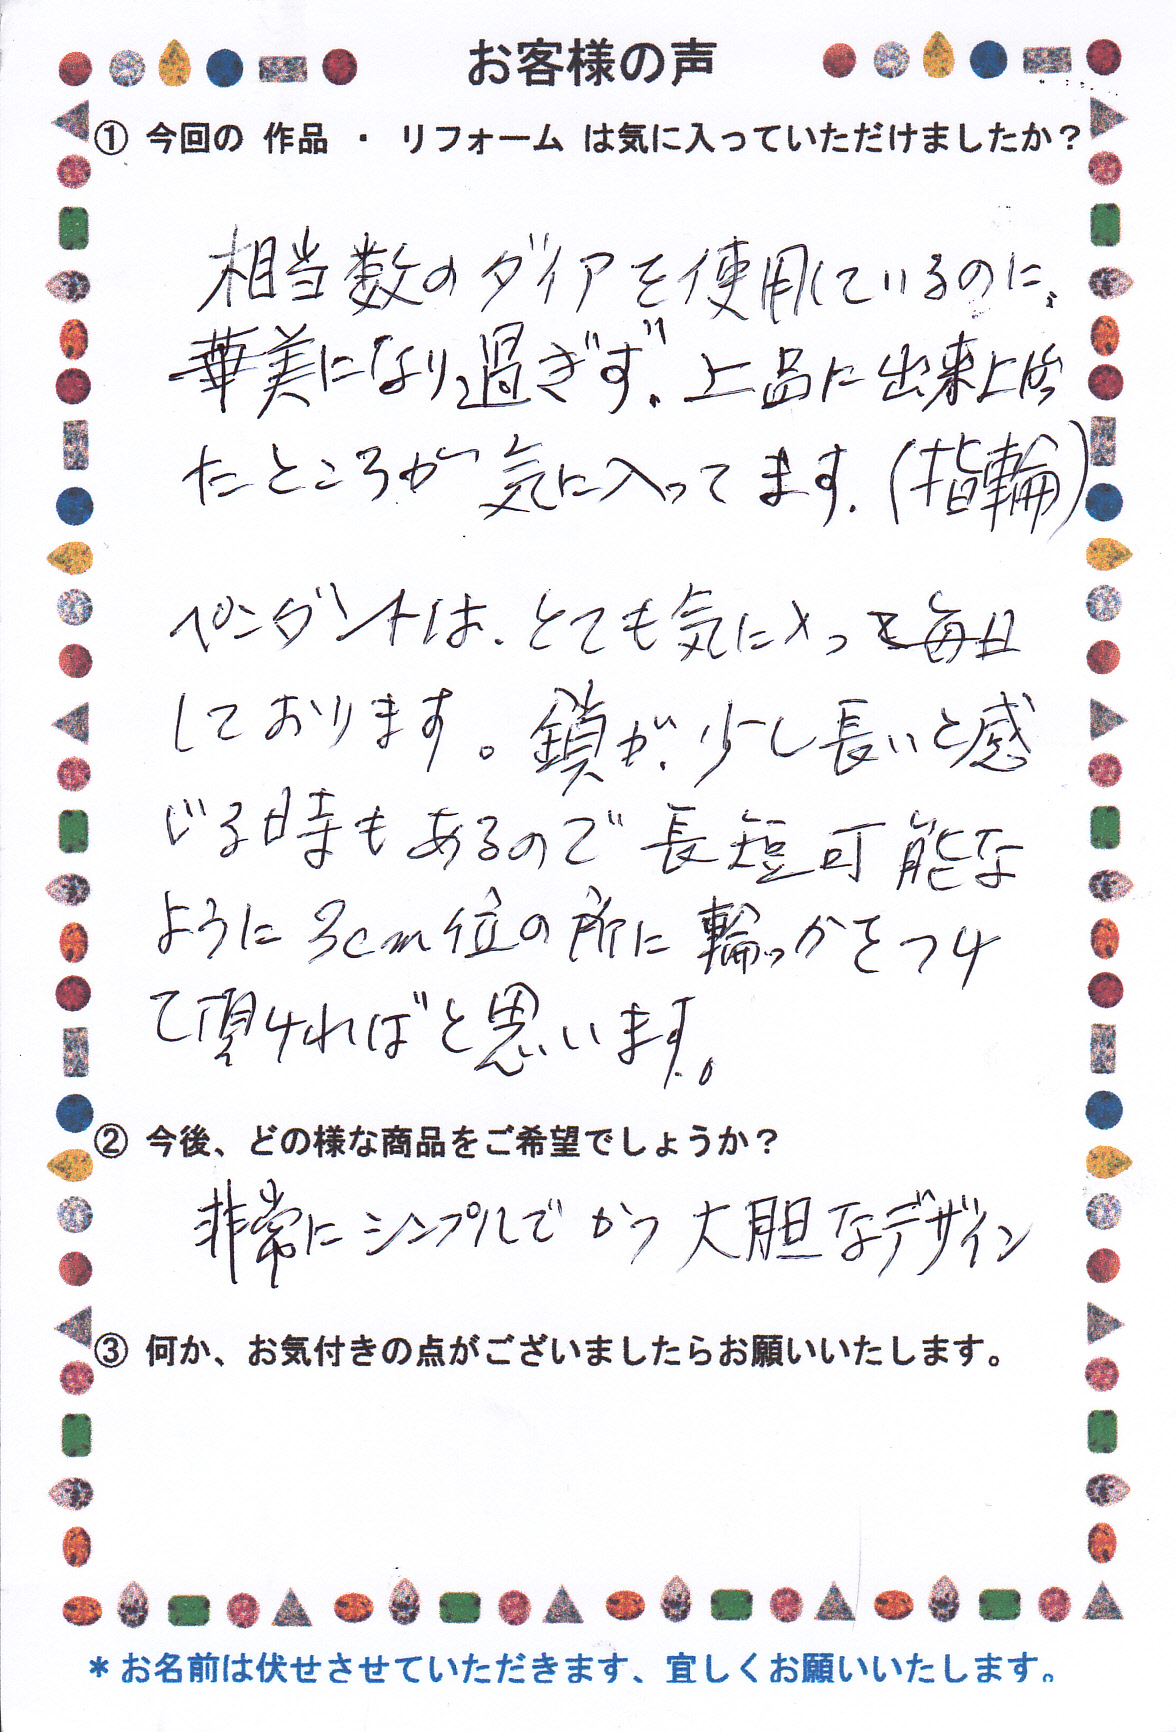 お客様の声
① 今回の 作品 ・ リフォーム は気に入っていただけましたか？
相当数のダイアを使用しているのに、
華美になり過ぎず、上品に出来上がっ
たところが気に入ってます.(指輪)
ペンダントは、とても気に入って毎日
しております。鎖が、少し長いと感
じる時もあるので長短可能な
ように3cm位の所に輪っかをつけ
て頂ければと思います。
② 今後、どの様な商品をご希望でしょうか？
非常にシンプルでかつ大胆なデザイン
③ 何か、お気付きの点がございましたらお願いいたします。
＊お名前は伏せさせていただきます、宜しくお願いいたします。